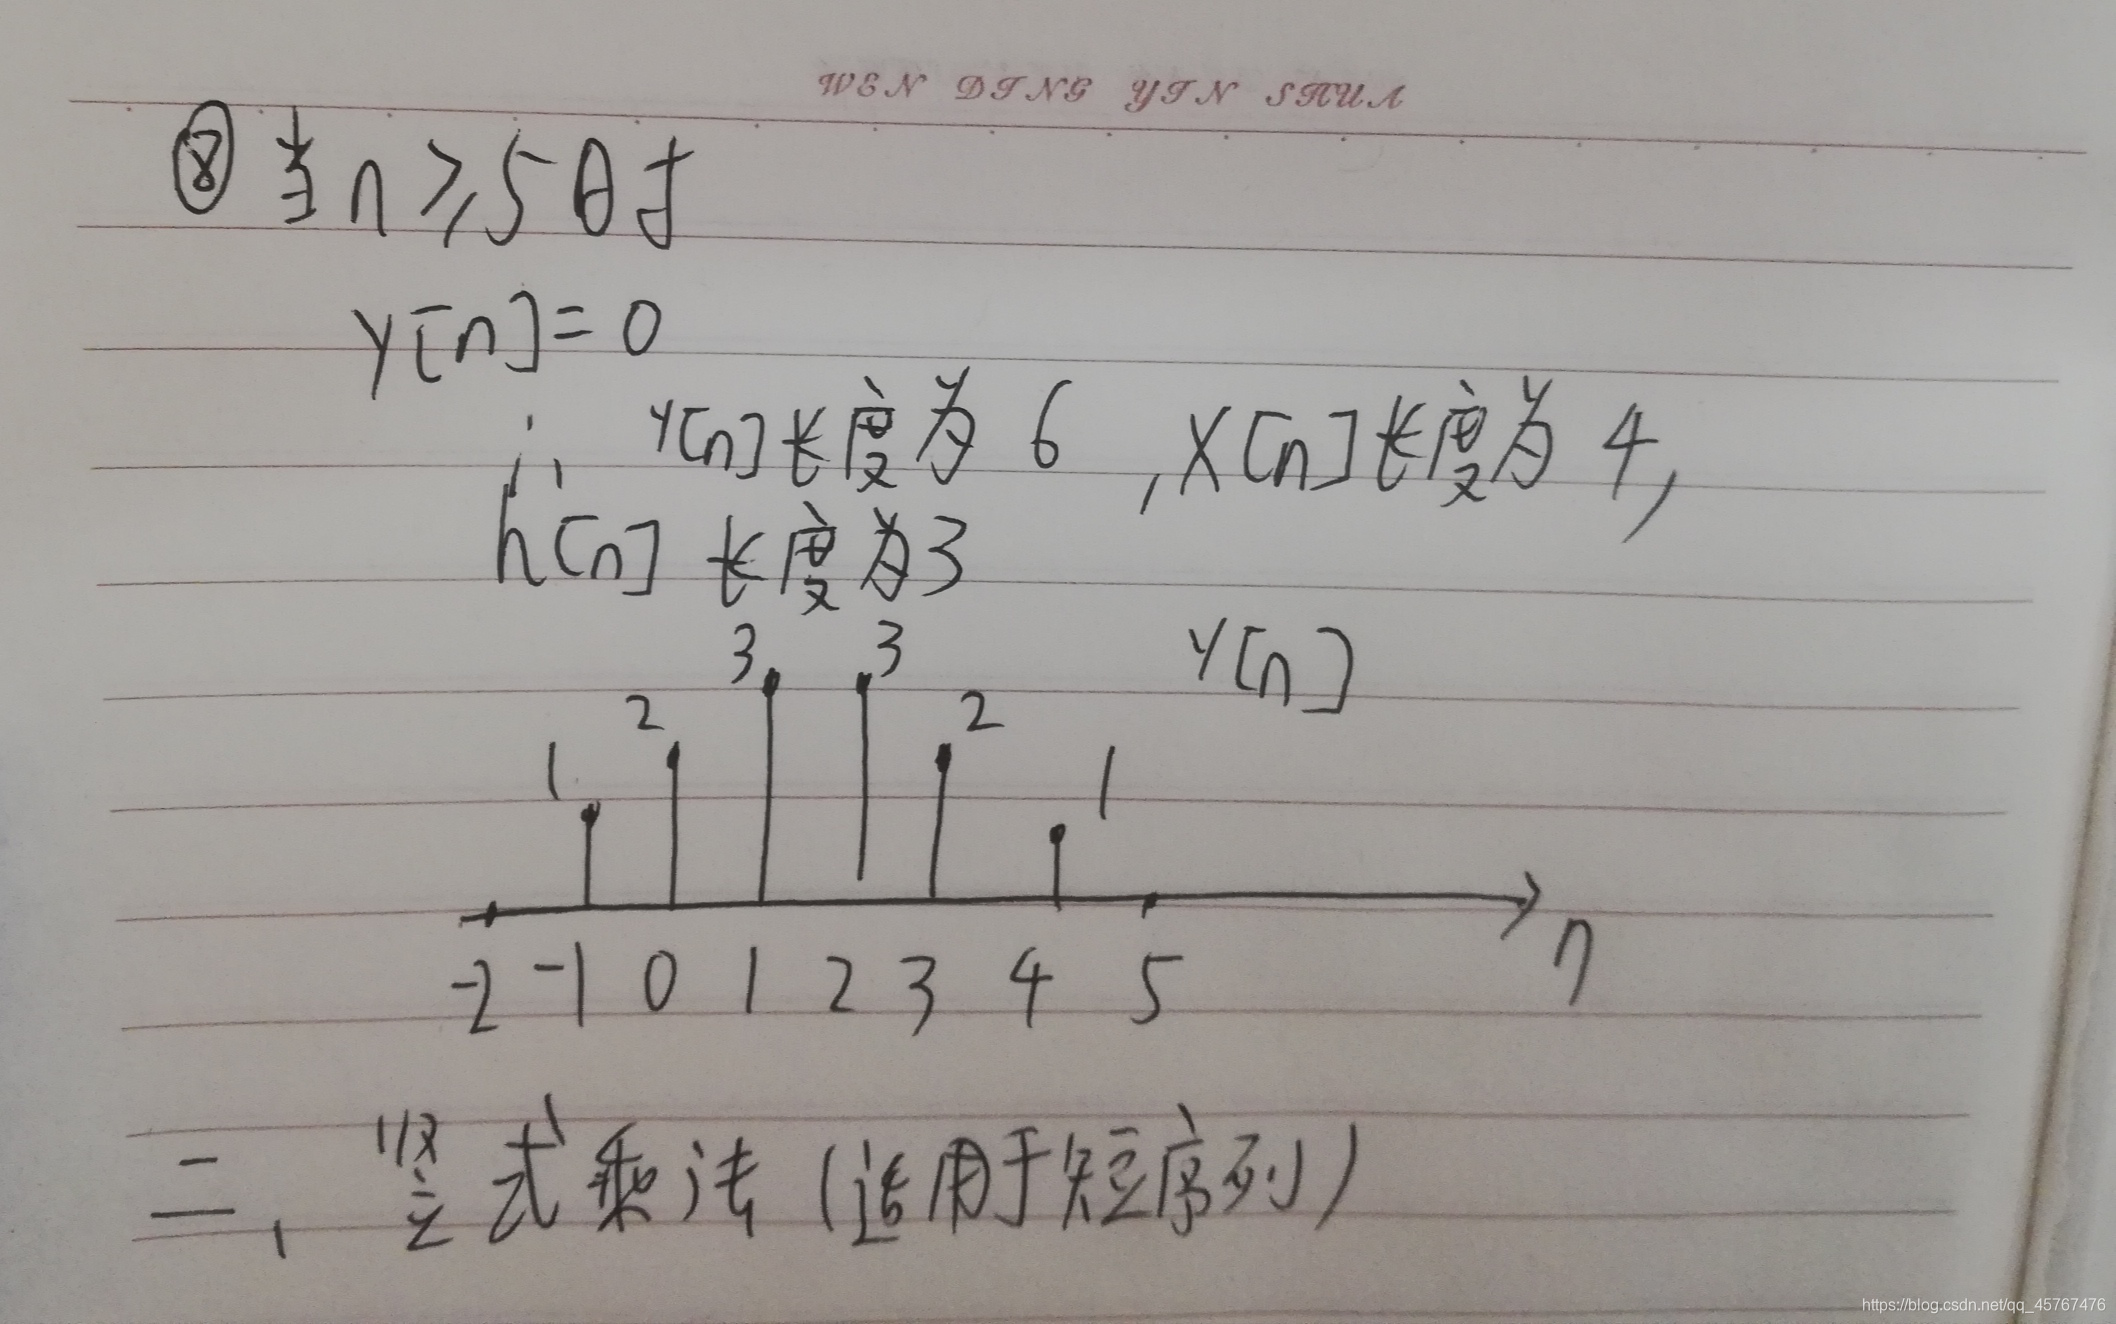 WEN DING YIN SHUA
⑧ 当n≥5时
y[n]=0
∴ y[n]长度为6,x[n]长度为4,
h[n]长度为3
3 3 y[n]
2 2
1 1
-2 -1 0 1 2 3 4 5 n
二、竖式乘法(适用于短序列)
https://blog.csdn.net/qq_45767476